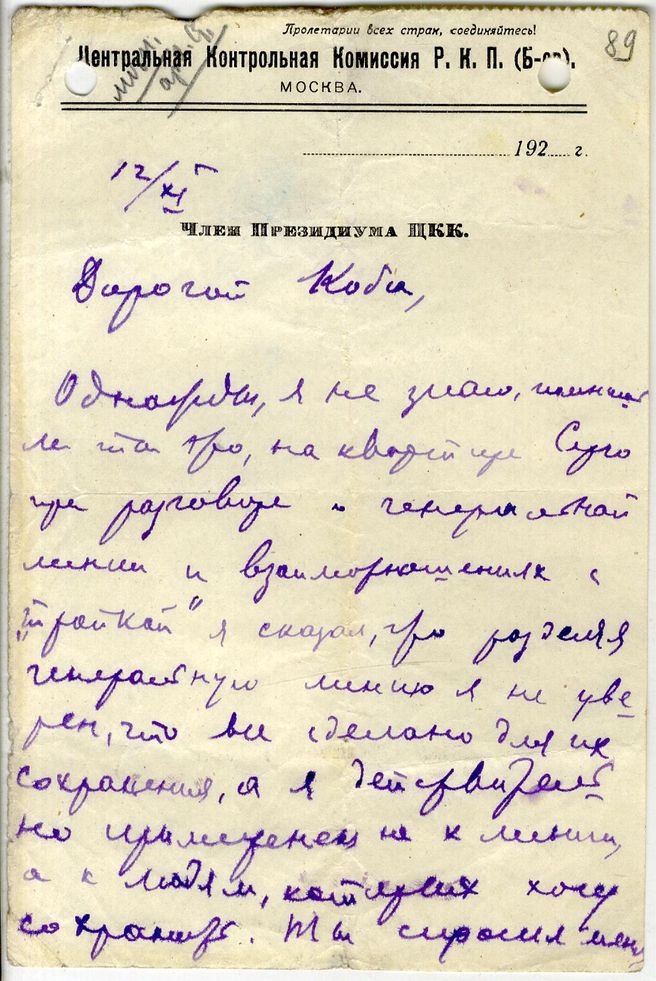 Пролетарии всех стран, соединяйтесь!
89
Центральная Контрольная Комиссия Р. К. П. (Б-ов).
МОСКВА.
192 г.
12/XI
Член Президиума ЦКК.
Дорогой Коба,
Однажды, я не знаю,
ли ты это, на квартире Серго
при разговоре о генеральной
линии и взаимоотношениях с
„тройкой" я сказал, что разделяя
генеральную линию я не уве-
рен, что все сделано для их
сохранения, а я действитель-
но не к линии,
а к людям, которых хочу
сохранить. Ты спросил меня